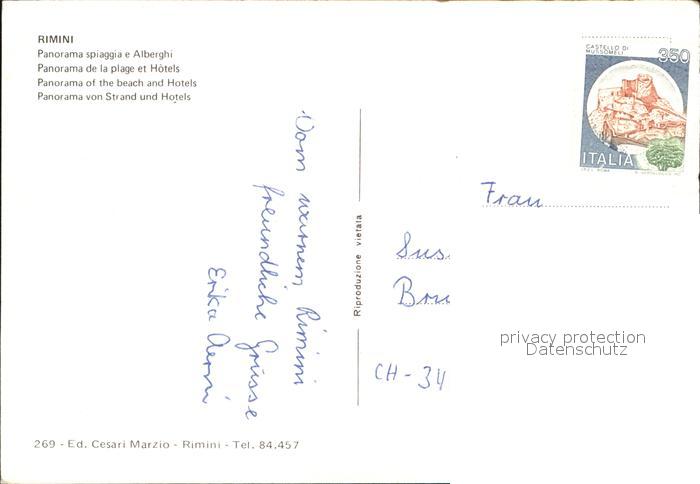 RIMINI
Panorama spiaggia e Alberghi
Panorama de la plage et Hôtels
Panorama of the beach and Hotels
Panorama von Strand und Hotels
Vom warmem Rimini
freundliche Grüsse
Erika Aerni
Riproduzione vietata
CASTELLO DI
MUSSOMELI
350
ITALIA
I.P.Z.S. ROMA
Frau
Sus
Bru
CH-34
privacy protection
Datenschutz
269 - Ed. Cesari Marzio - Rimini - Tel. 84.457